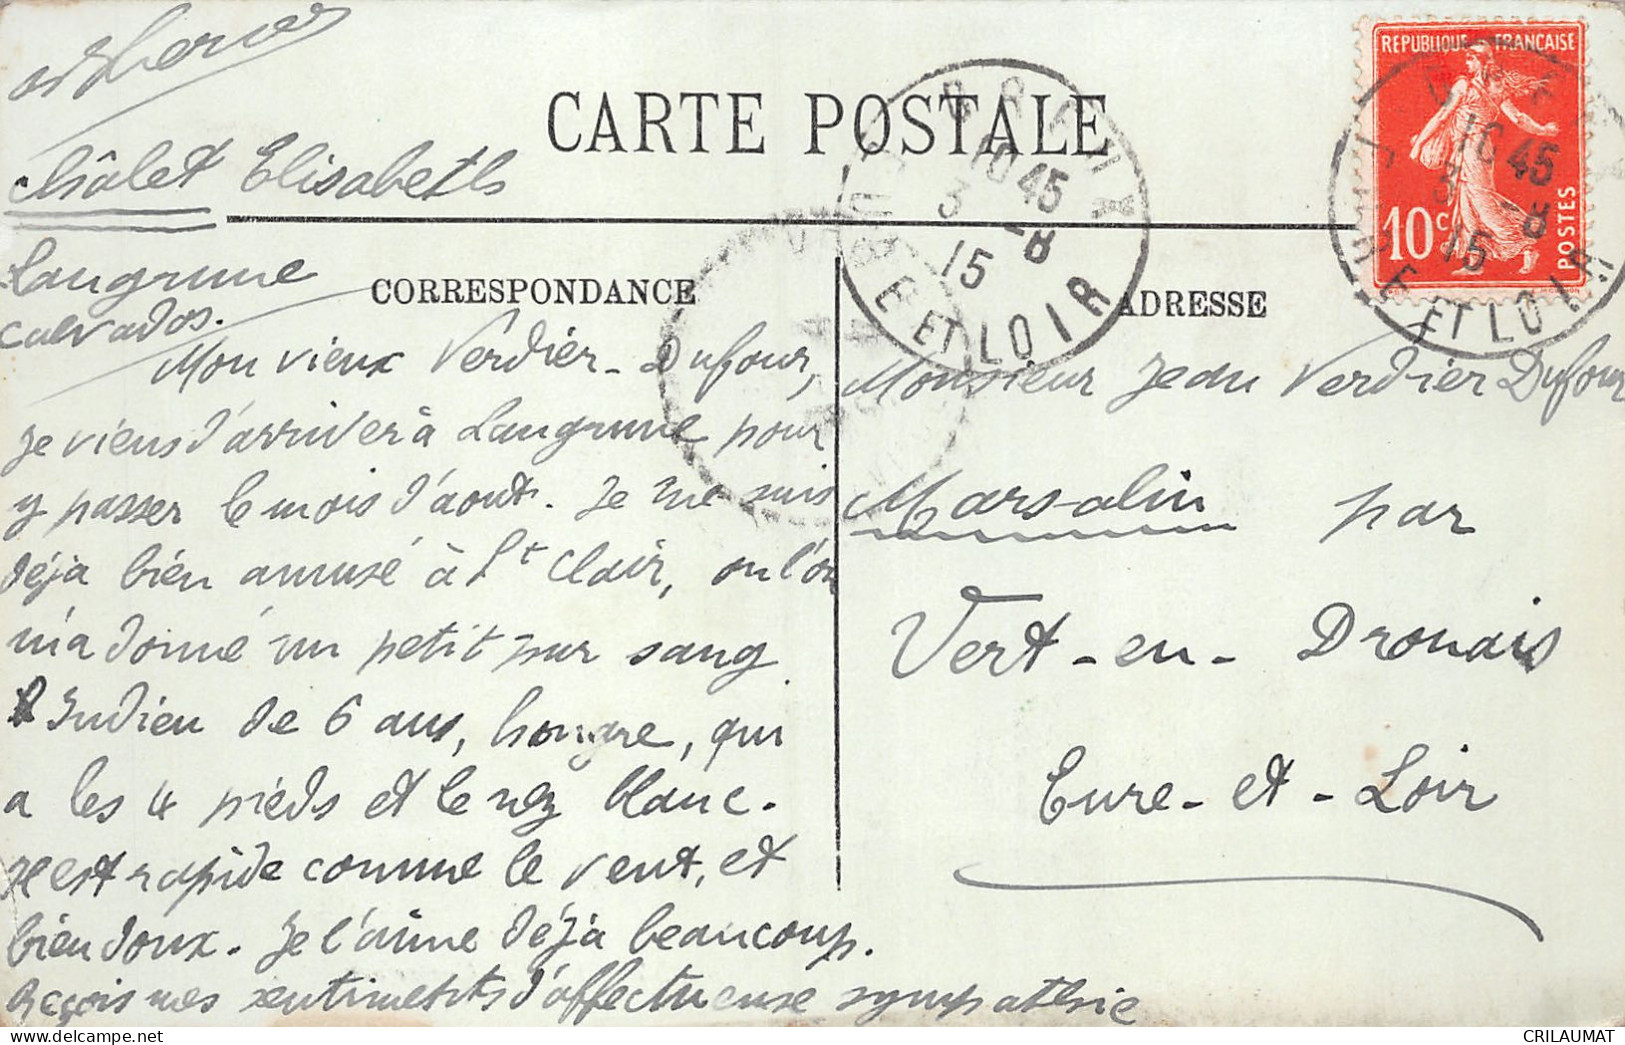 Châlet Elisabeth
Langrune
calvados.
CARTE POSTALE
CORRESPONDANCE
Mon vieux Verdier-Dufour,
je viens d'arriver à Langrune pour
y passer le mois d'aout. Je me suis
déja bien amusé à St Clair, ou l'on
m'a donné un petit pur sang
Indien de 6 ans, hongre, qui
a les 4 pieds et le nez blanc.
Il est rapide comme le vent, et
bien doux. Je l'aime déjà beaucoup.
Reçois mes sentiments d'affectueuse sympathie
ADRESSE
Monsieur Jean Verdier Dufour
Marsalin par
Vert-en-Drouais
Eure-et-Loir
REPUBLIQUE FRANÇAISE
10c
POSTES
10 45
3 -8
15
ET LOIR
10 45
3 -8
15
ET LOIR
CRILAUMAT